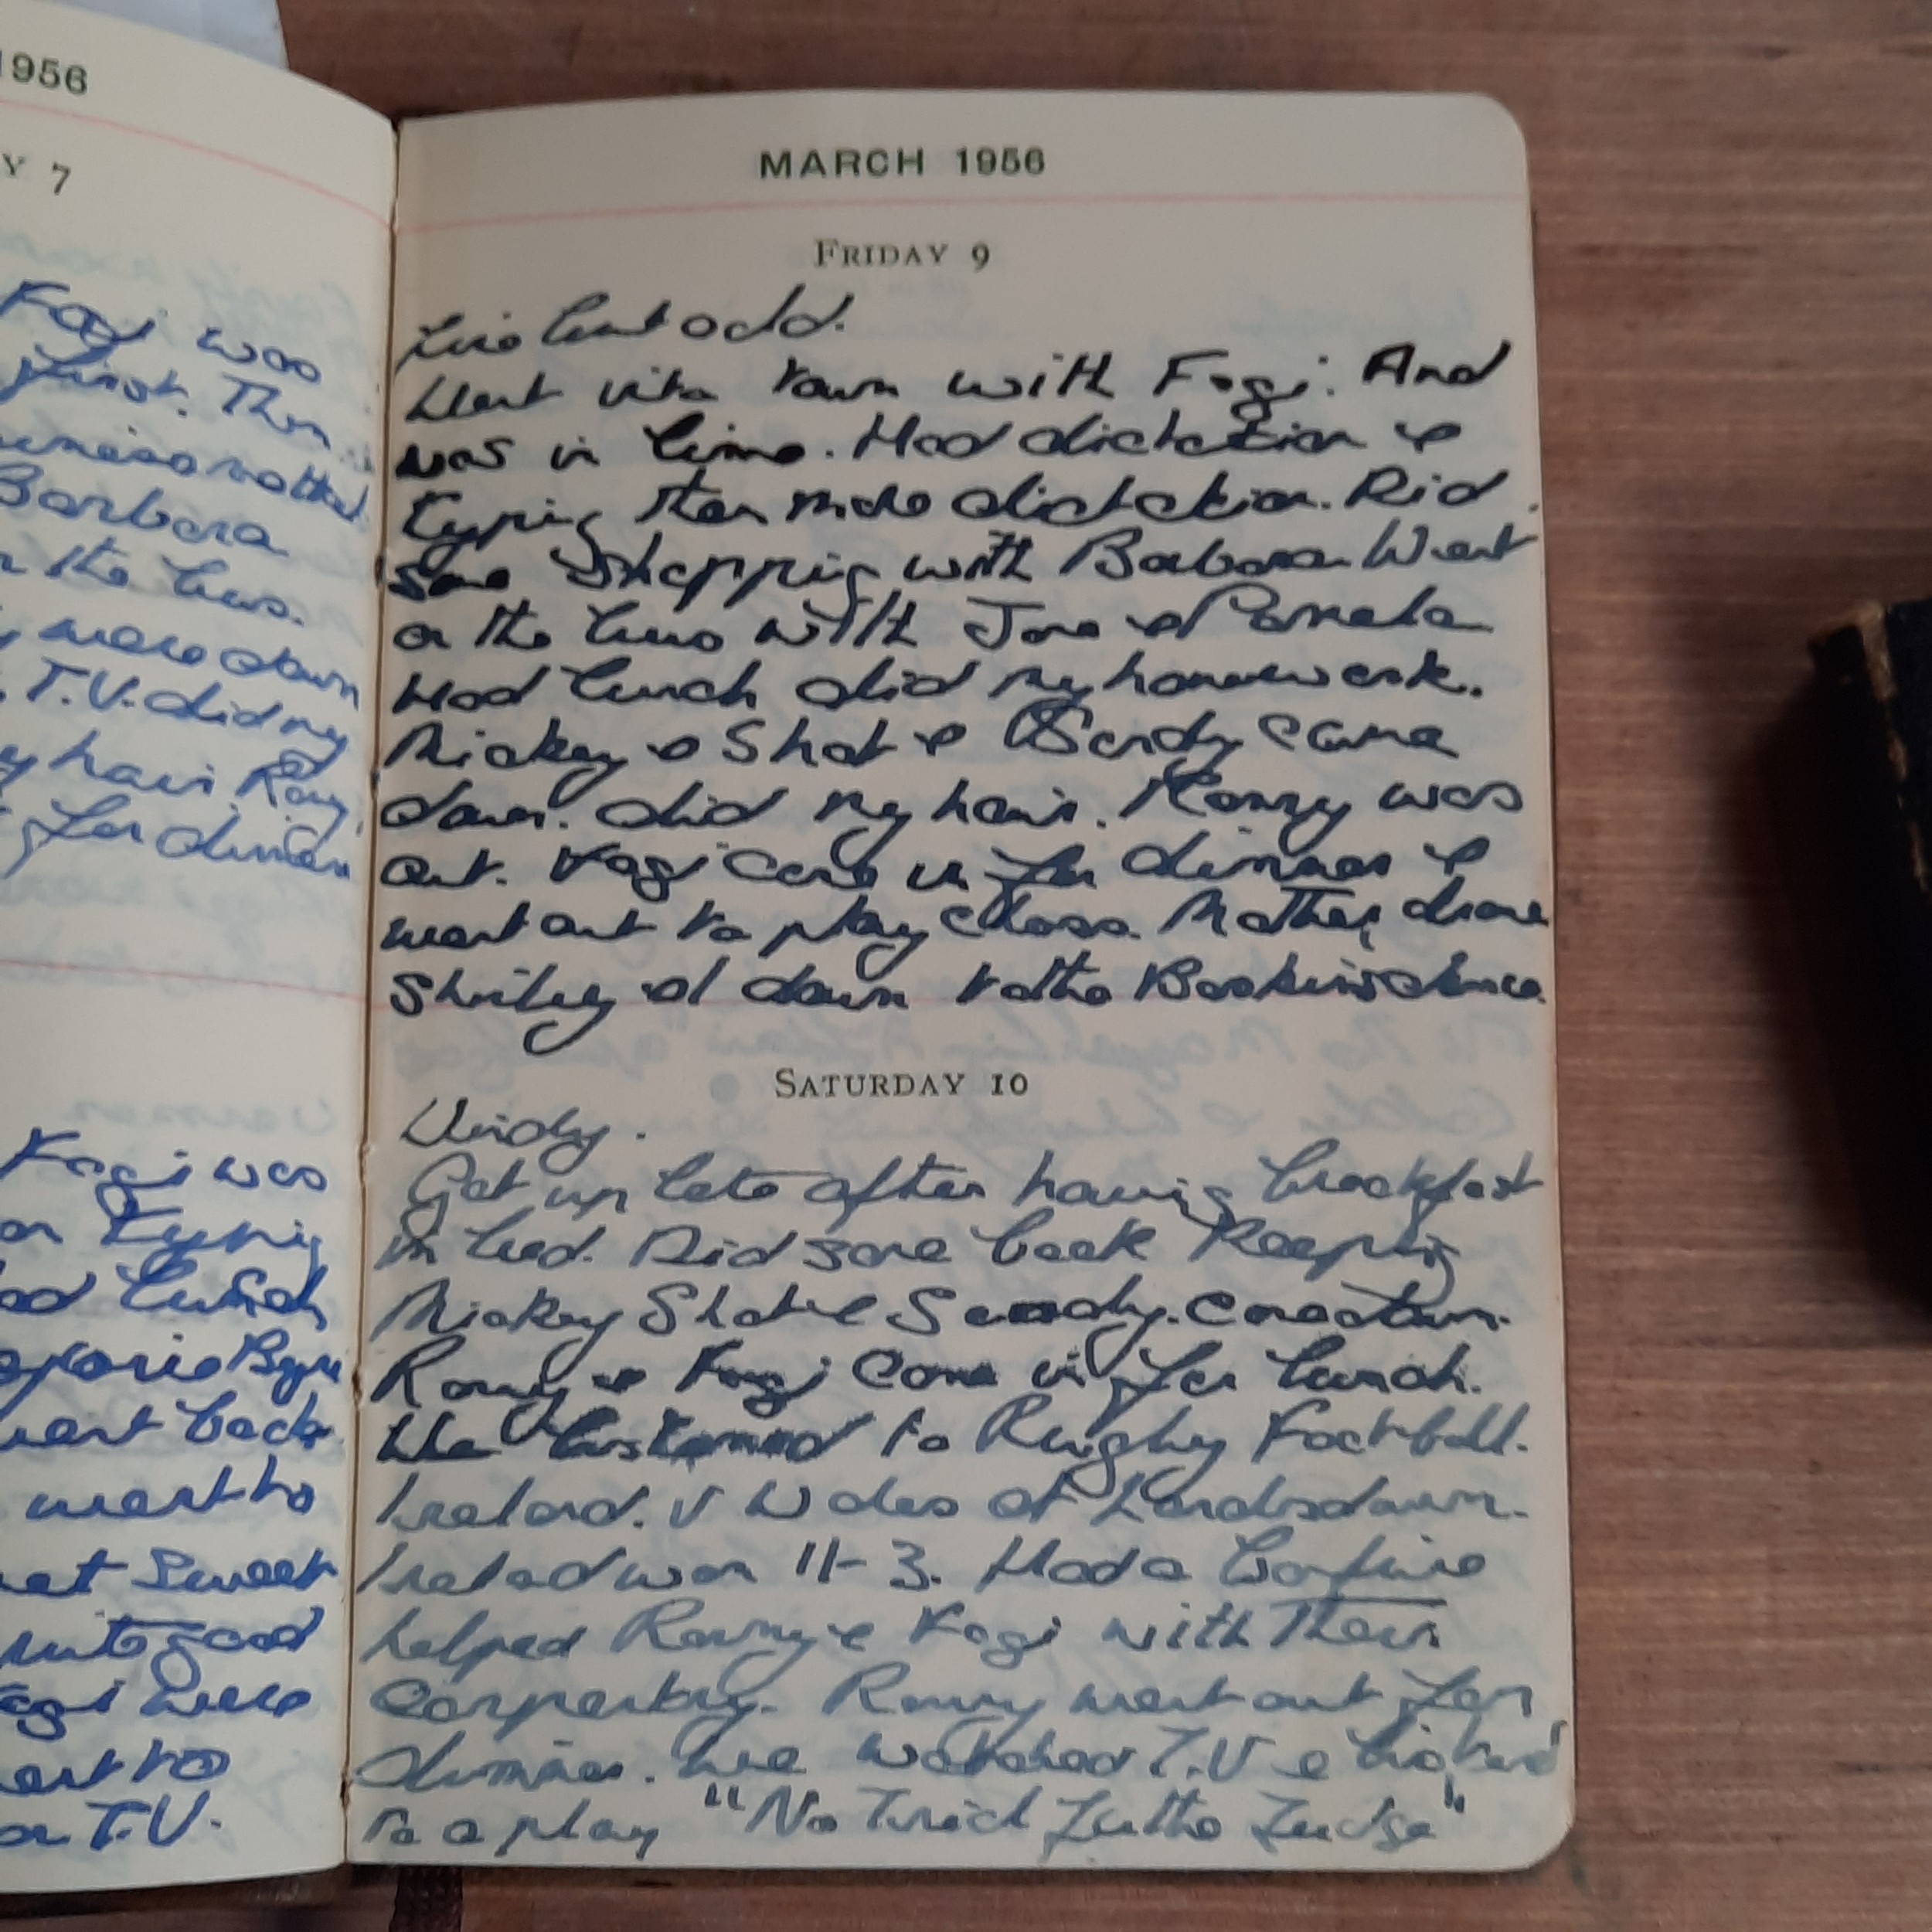 1956
Y 7
Fogi was
first. Then
Barbara
n the bus.
y were down
T.V. did my
y hair. Rory
for dinner
Fogi was
or typing
od lunch
went back
went to
sweet
quite good
ogi were
ent to
on T.V.
MARCH 1956
FRIDAY 9
Fine but odd.
Went into town with Fogi. And
was in time. Had dictation &
typing then more dictation. Did
some shopping with Barbara Went
on the bus with Jane & Pamela
Had lunch did my homework.
Mickey & Shot & Sandy came
down. did my hair. Rory was
out. Fogi came in for dinner &
went out to play chess. Mother drove
Shirley & I down to the dance.
SATURDAY 10
Windy.
Got up late after having breakfast
in bed. Did some book keeping
Mickey Shot & Sandy. came down.
Rory & Fogi came in for lunch.
We listened to Rugby Football.
Ireland. V Wales at Landsdown.
Ireland won 11-3. Had a bonfire
helped Rory & Fogi with their
carpentry. Rory went out for
dinner. We watched T.V & listened
to a play "No